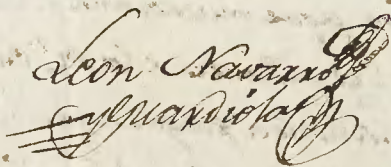 Leon Navarro
y Guardiola